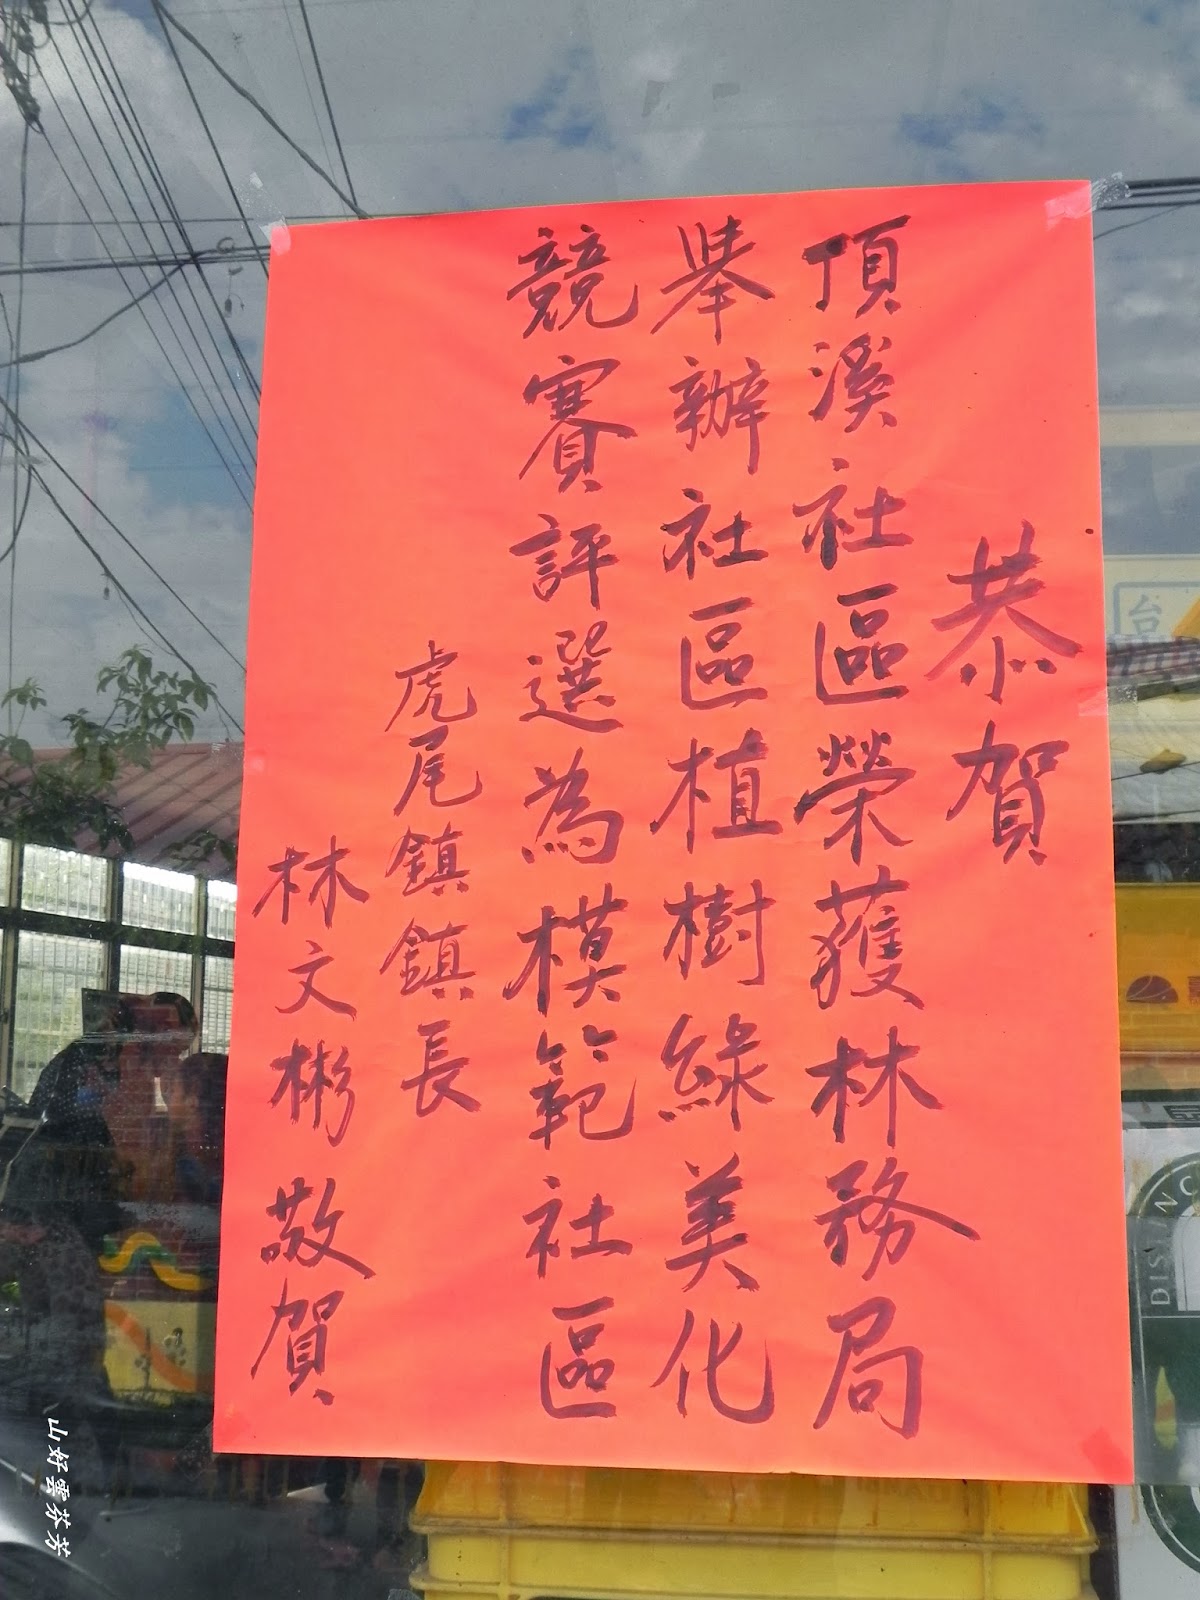 恭賀
頂溪社區榮獲林務局
舉辦社區植樹綠美化
競賽評選為模範社區
虎尾鎮鎮長
林文彬 敬賀
台
山好雲芬芳